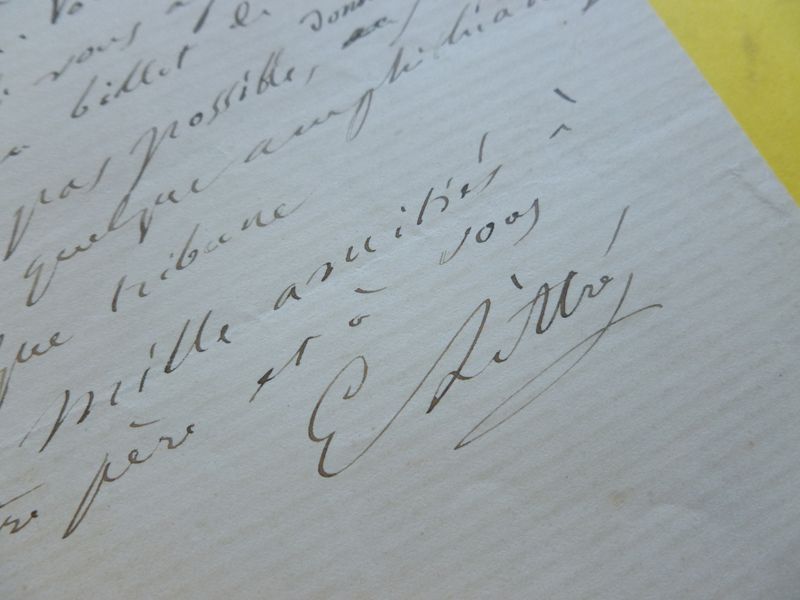 vous
billet de donn
pas possible, au
quelque amphithéa
que tribune
mille amitiés à
tre père et à vous
E Littré